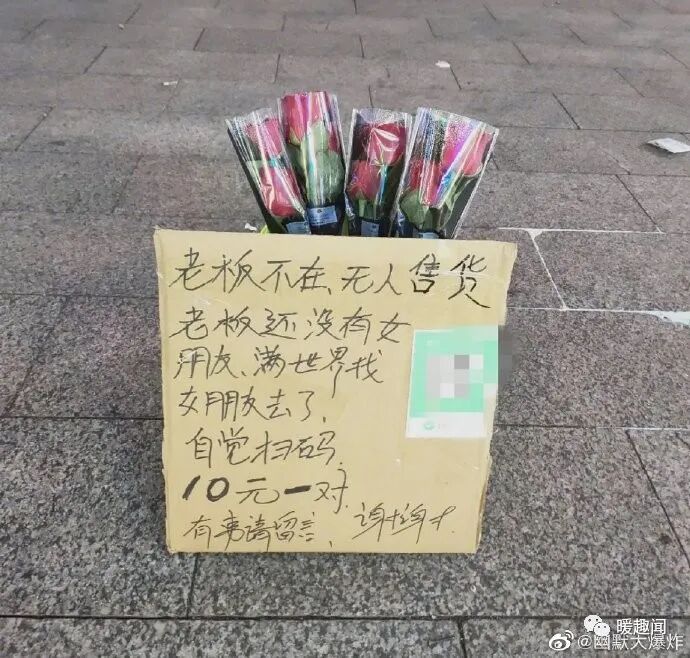 老板不在、无人售货
老板还没有女
朋友、满世界找
女朋友去了、
自觉扫码、
10元一对、
有事请留言、谢谢谢才.
暖趣闻
@幽默大爆炸